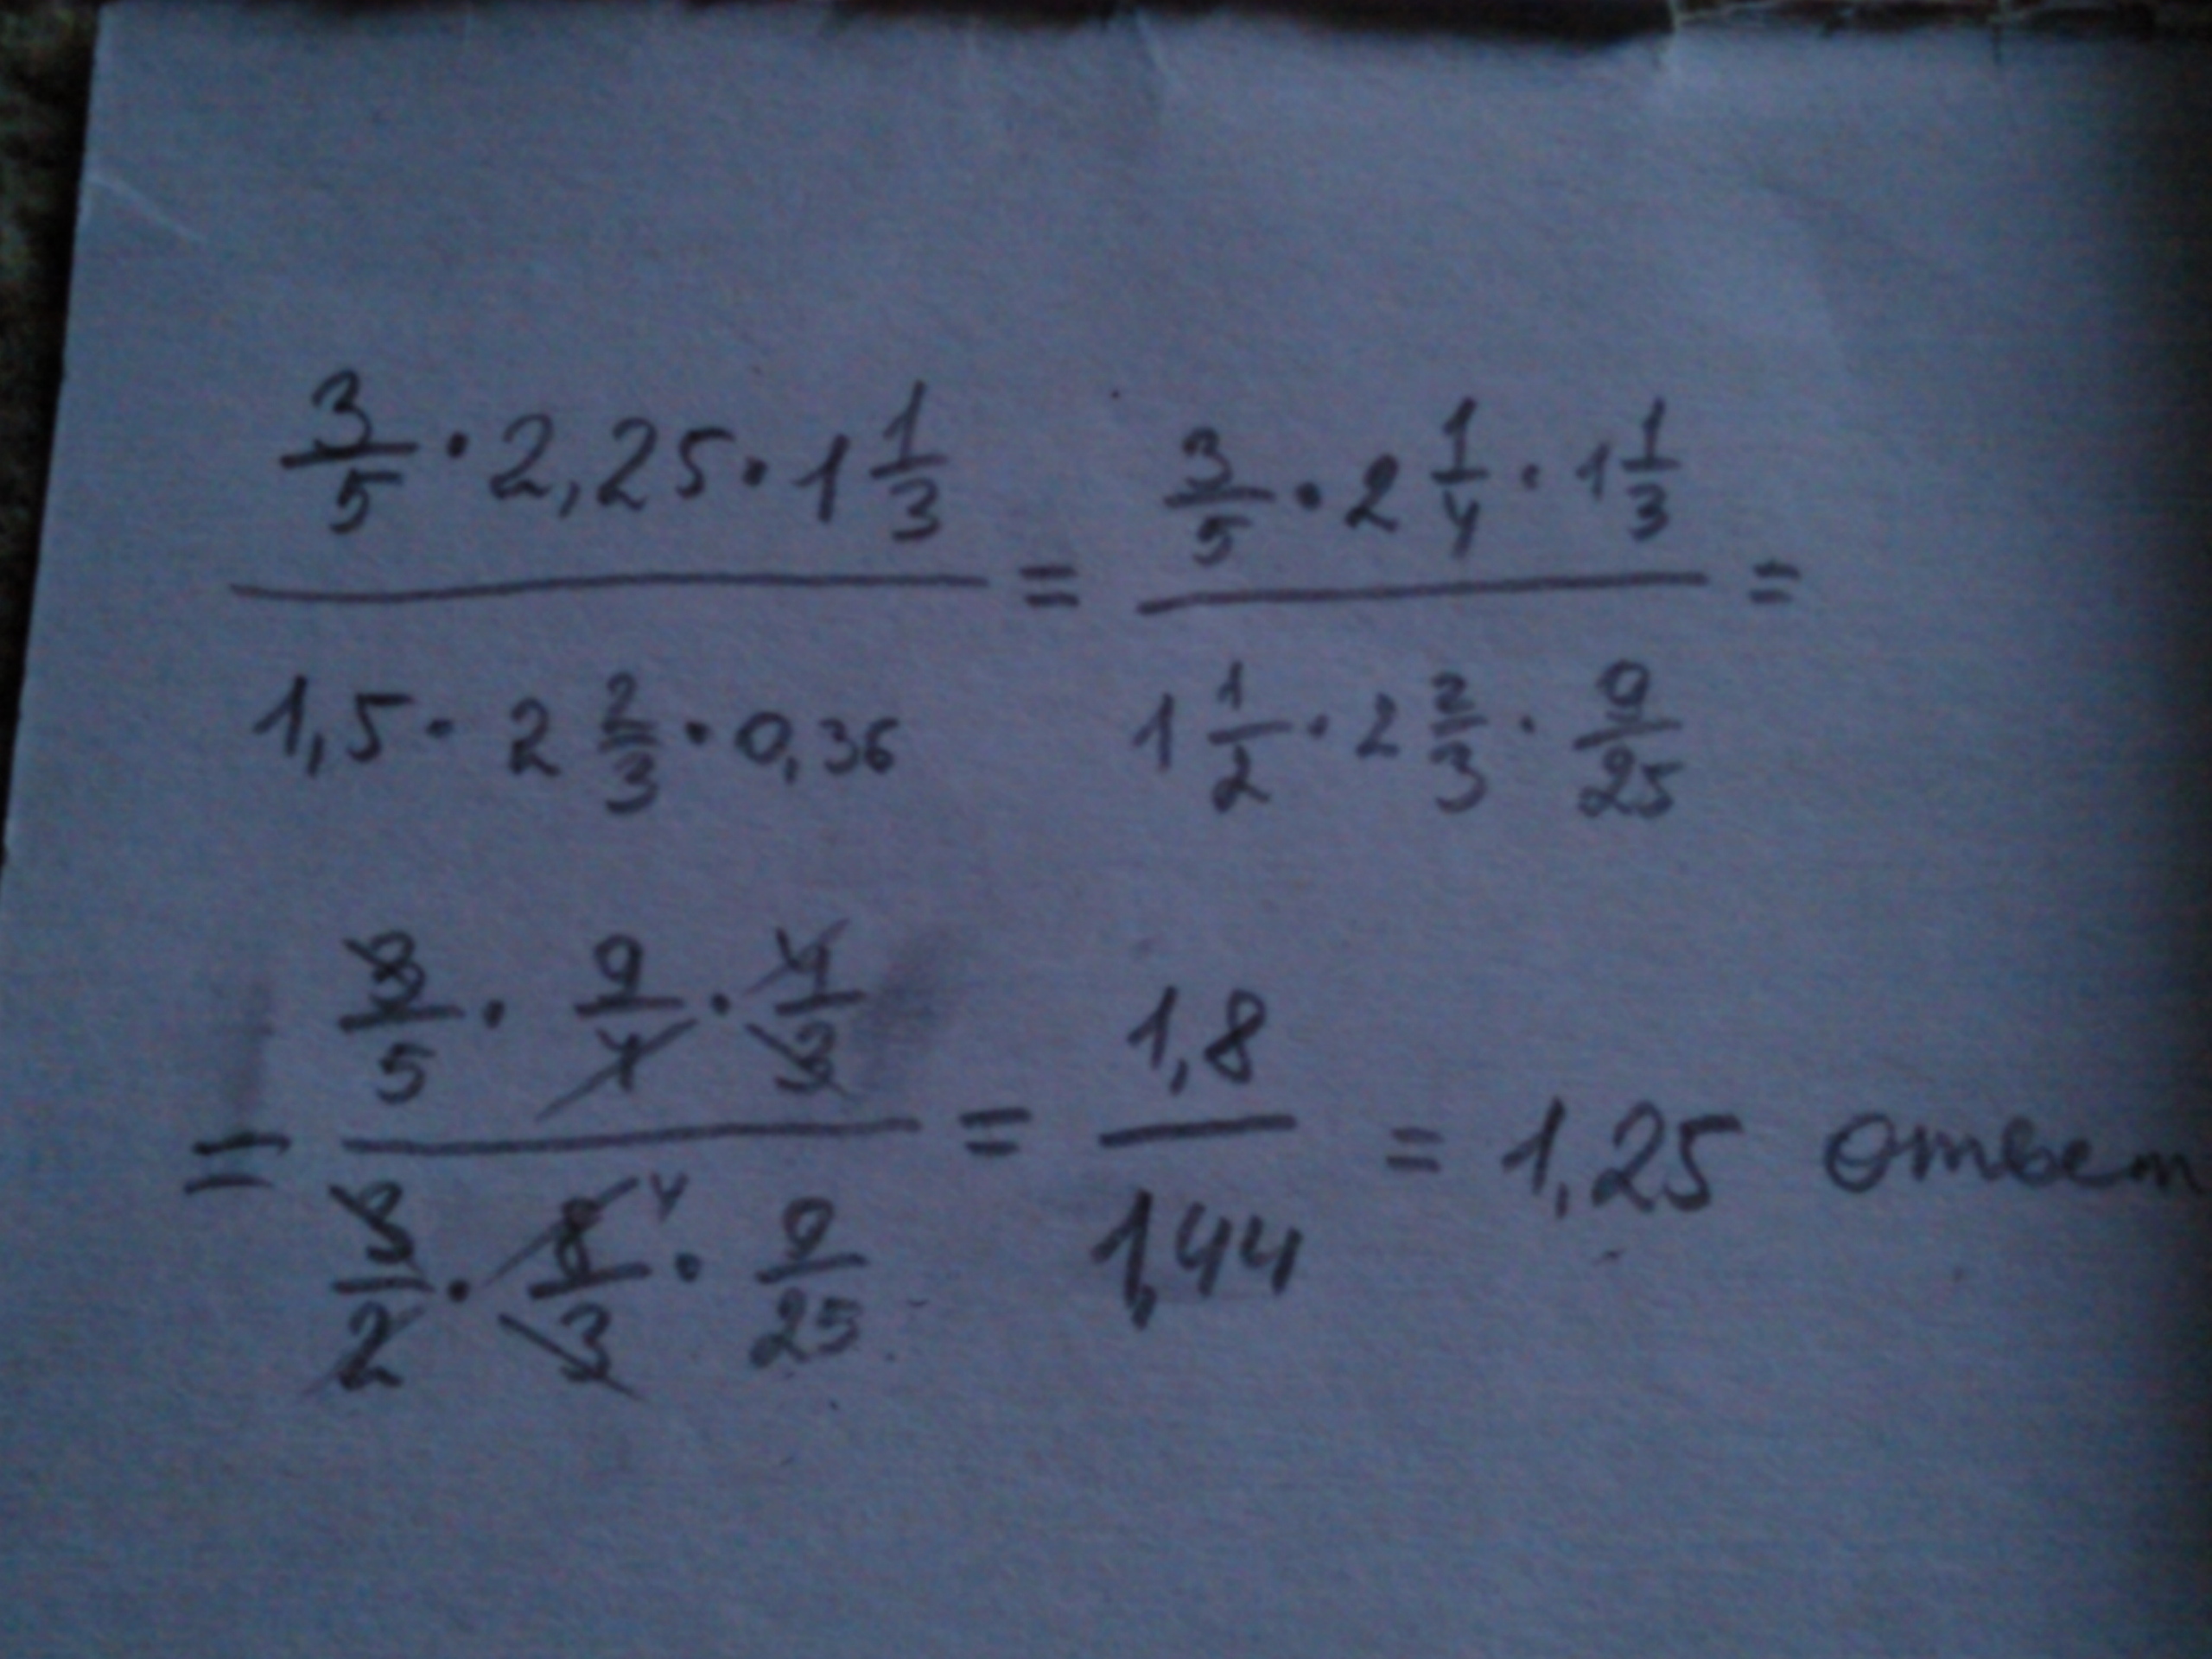 3/5 · 2,25 · 1 1/3 / 1,5 · 2 2/3 · 0,36 = 3/5 · 2 1/4 · 1 1/3 / 1 1/2 · 2 2/3 · 9/25 =
= 3/5 · 9/4 · 4/3 / 3/2 · 8/3 4 · 9/25 = 1,8 / 1,44 = 1,25 ответ